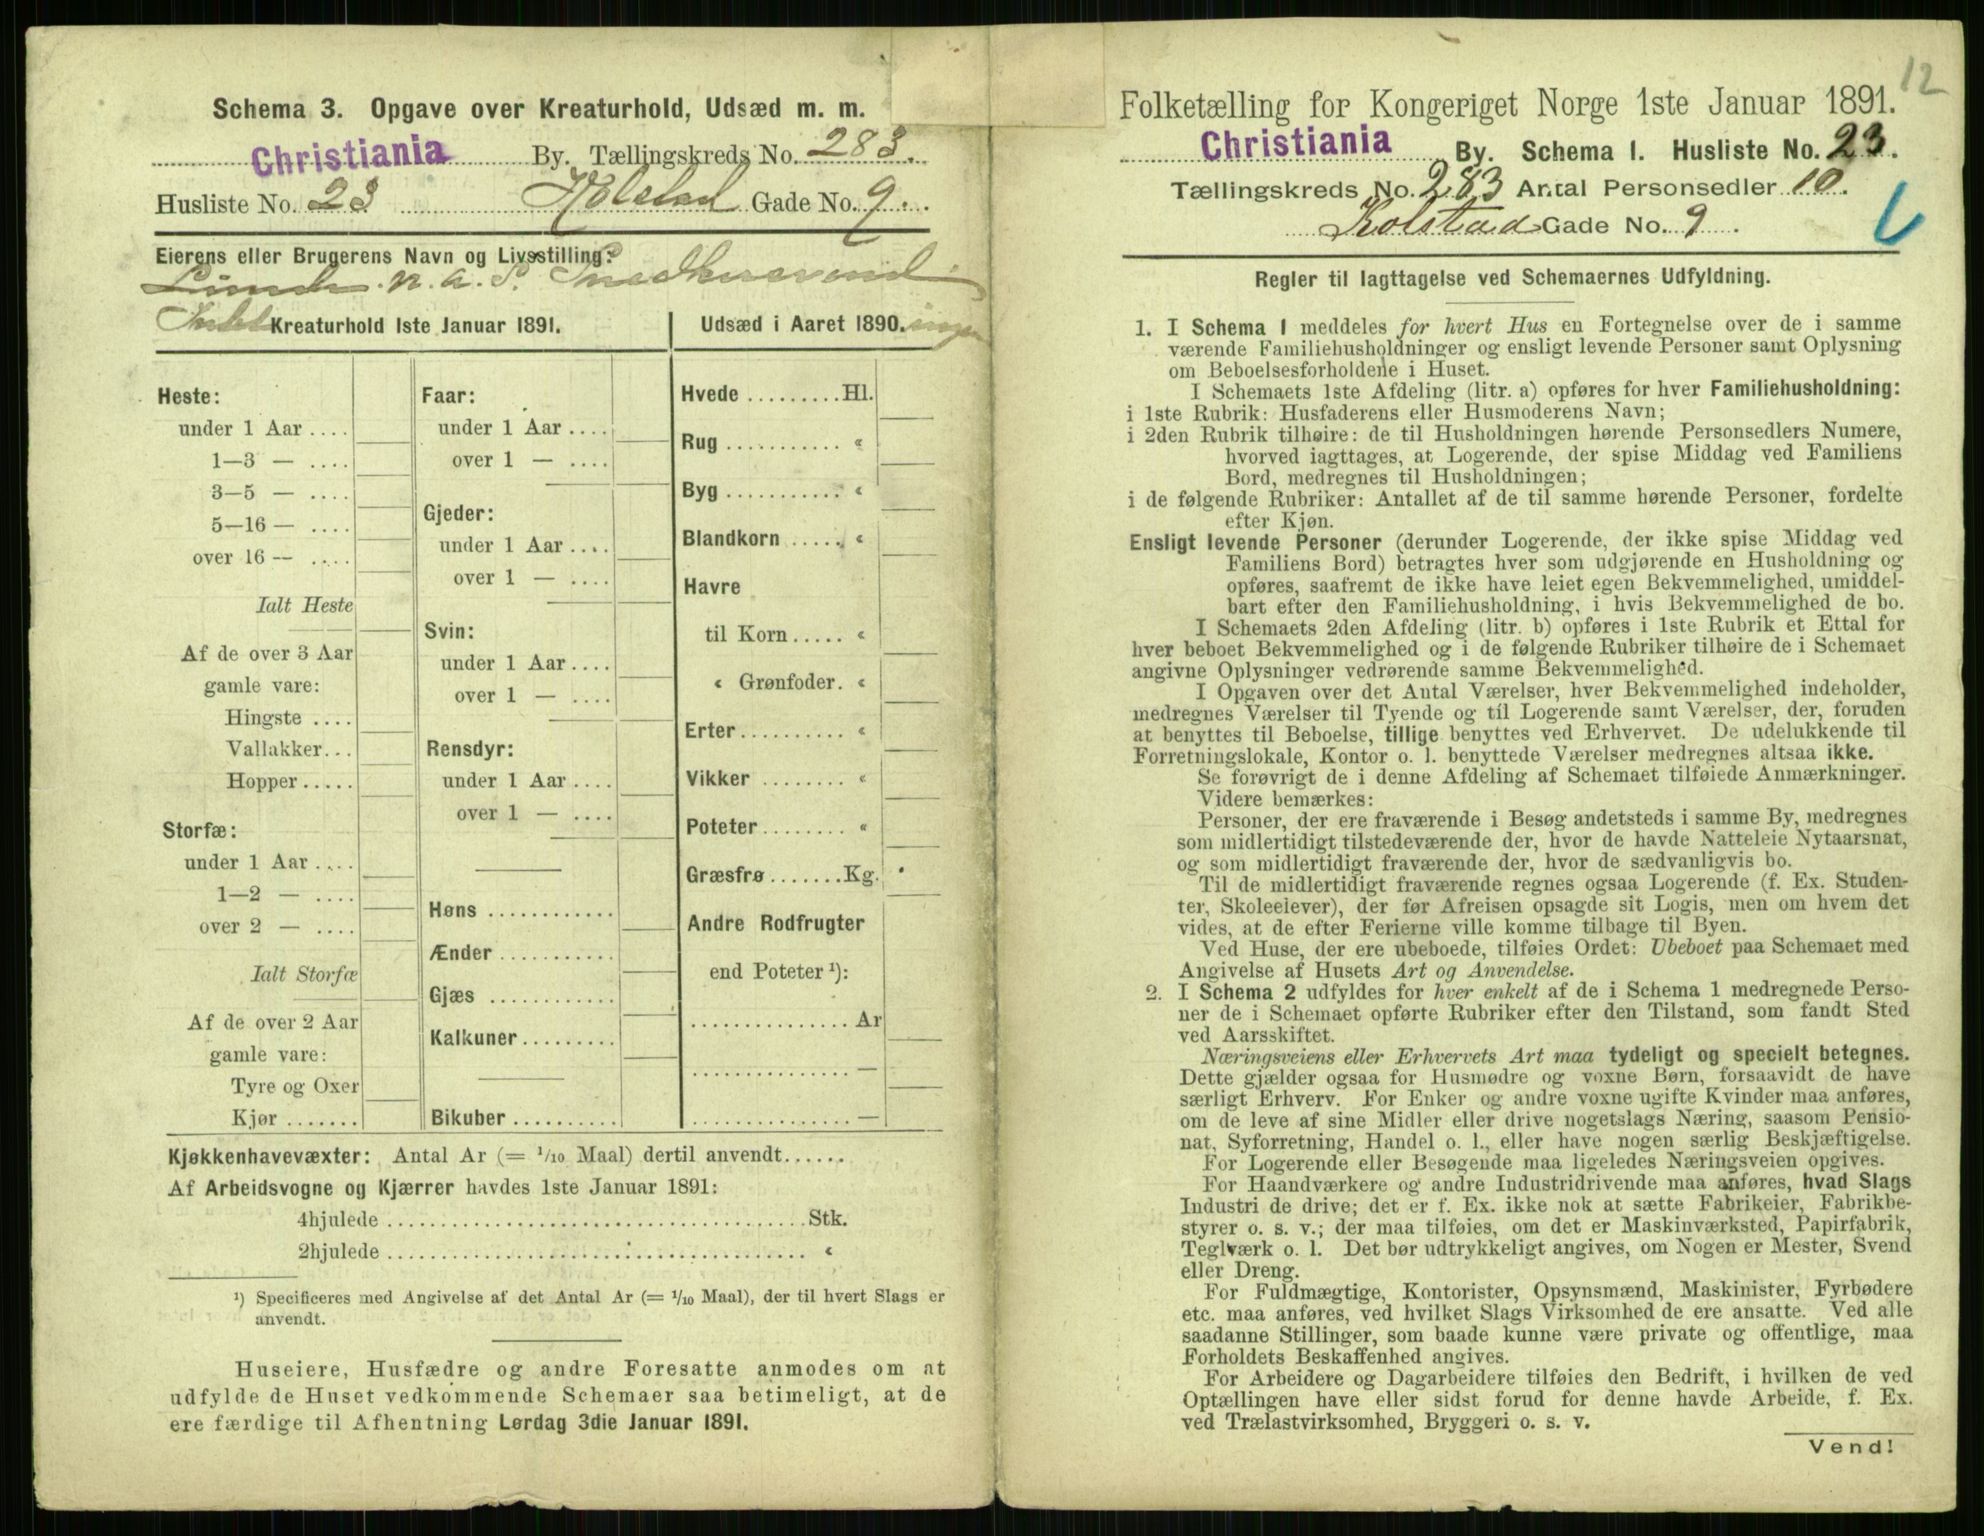 Schema 3. Opgave over Kreaturhold, Udsæd m. m.
Christiania By. Tællingskreds No. 283.
Husliste No. 23 Kolstad Gade No. 9.
Eierens eller Brugerens Navn og Livsstilling:
Lunde. N. A. S. Snedkersvend.
Kreaturhold 1ste Januar 1891.
Heste:
under 1 Aar ....
1—3 — ....
3—5 — ....
5—16 — ....
over 16 — ....
Ialt Heste
Af de over 3 Aar
gamle vare:
Hingste ....
Vallakker...
Hopper.....
Storfæ:
under 1 Aar ....
1—2 — ....
over 2 — ....
Ialt Storfæ
Af de over 2 Aar
gamle vare:
Tyre og Oxer
Kjør .......
Faar:
under 1 Aar ....
over 1 — ....
Gjeder:
under 1 Aar ....
over 1 — ....
Svin:
under 1 Aar ....
over 1 — ....
Rensdyr:
under 1 Aar ....
over 1 — ....
Høns ............
Ænder ...........
Gjæs ............
Kalkuner.........
Bikuber ..........
Udsæd i Aaret 1890. ingen
Hvede .........Hl.
Rug ........... «
Byg ........... «
Blandkorn ..... «
Havre
til Korn..... «
« Grønfoder. «
Erter.......... «
Vikker ........ «
Poteter........ «
Græsfrø .......Kg.
Andre Rodfrugter
end Poteter ¹):
...............Ar
............... —
............... —
Kjøkkenhavevæxter: Antal Ar (= 1/10 Maal) dertil anvendt......
Af Arbeidsvogne og Kjærrer havdes 1ste Januar 1891:
4hjulede ........................................Stk.
2hjulede ........................................ «
¹) Specificeres med Angivelse af det Antal Ar (= 1/10 Maal), der til hvert Slags er
anvendt.
Huseiere, Husfædre og andre Foresatte anmodes om at
udfylde de Huset vedkommende Schemaer saa betimeligt, at de
ere færdige til Afhentning Lørdag 3die Januar 1891.
12
Folketælling for Kongeriget Norge 1ste Januar 1891.
Christiania By. Schema 1. Husliste No. 23.
Tællingskreds No. 283 Antal Personsedler 10.
Kolstad Gade No. 9.
Regler til Iagttagelse ved Schemaernes Udfyldning.
1. I Schema 1 meddeles for hvert Hus en Fortegnelse over de i samme
værende Familiehusholdninger og ensligt levende Personer samt Oplysning
om Beboelsesforholdene i Huset.
I Schemaets 1ste Afdeling (litr. a) opføres for hver Familiehusholdning:
i 1ste Rubrik: Husfaderens eller Husmoderens Navn;
i 2den Rubrik tilhøire: de til Husholdningen hørende Personsedlers Numere,
hvorved iagttages, at Logerende, der spise Middag ved Familiens
Bord, medregnes til Husholdningen;
i de følgende Rubriker: Antallet af de til samme hørende Personer, fordelte
efter Kjøn.
Ensligt levende Personer (derunder Logerende, der ikke spise Middag ved
Familiens Bord) betragtes hver som udgjørende en Husholdning og
opføres, saafremt de ikke have leiet egen Bekvemmelighed, umiddel-
bart efter den Familiehusholdning, i hvis Bekvemmelighed de bo.
I Schemaets 2den Afdeling (litr. b) opføres i 1ste Rubrik et Ettal for
hver beboet Bekvemmelighed og i de følgende Rubriker tilhøire de i Schemaet
angivne Oplysninger vedrørende samme Bekvemmelighed.
I Opgaven over det Antal Værelser, hver Bekvemmelighed indeholder,
medregnes Værelser til Tyende og til Logerende samt Værelser, der, foruden
at benyttes til Beboelse, tillige benyttes ved Erhvervet. De udelukkende til
Forretningslokale, Kontor o. l. benyttede Værelser medregnes altsaa ikke.
Se forøvrigt de i denne Afdeling af Schemaet tilføiede Anmærkninger.
Videre bemærkes:
Personer, der ere fraværende i Besøg andetsteds i samme By, medregnes
som midlertidigt tilstedeværende der, hvor de havde Natteleie Nytaarsnat,
og som midlertidigt fraværende der, hvor de sædvanligvis bo.
Til de midlertidigt fraværende regnes ogsaa Logerende (f. Ex. Studen-
ter, Skoleelever), der før Afreisen opsagde sit Logis, men om hvem det
vides, at de efter Ferierne ville komme tilbage til Byen.
Ved Huse, der ere ubeboede, tilføies Ordet: Ubeboet paa Schemaet med
Angivelse af Husets Art og Anvendelse.
2. I Schema 2 udfyldes for hver enkelt af de i Schema 1 medregnede Perso-
ner de i Schemaet opførte Rubriker efter den Tilstand, som fandt Sted
ved Aarsskiftet.
Næringsveiens eller Erhvervets Art maa tydeligt og specielt betegnes.
Dette gjælder ogsaa for Husmødre og voxne Børn, forsaavidt de have
særligt Erhverv. For Enker og andre voxne ugifte Kvinder maa anføres,
om de leve af sine Midler eller drive nogetslags Næring, saasom Pensio-
nat, Syforretning, Handel o. l., eller have nogen særlig Beskjæftigelse.
For Logerende eller Besøgende maa ligeledes Næringsveien opgives.
For Haandværkere og andre Industridrivende maa anføres, hvad Slags
Industri de drive; det er f. Ex. ikke nok at sætte Fabrikeier, Fabrikbe-
styrer o. s. v.; der maa tilføies, om det er Maskinværksted, Papirfabrik,
Teglværk o. l. Det bør udtrykkeligt angives, om Nogen er Mester, Svend
eller Dreng.
For Fuldmægtige, Kontorister, Opsynsmænd, Maskinister, Fyrbødere
etc. maa anføres, ved hvilket Slags Virksomhed de ere ansatte. Ved alle
saadanne Stillinger, som baade kunne være private og offentlige, maa
Forholdets Beskaffenhed angives.
For Arbeidere og Dagarbeidere tilføies den Bedrift, i hvilken de ved
Optællingen have eller sidst forud for denne havde Arbeide, f. Ex.
ved Trælastvirksomhed, Bryggeri o. s. v.
Vend!